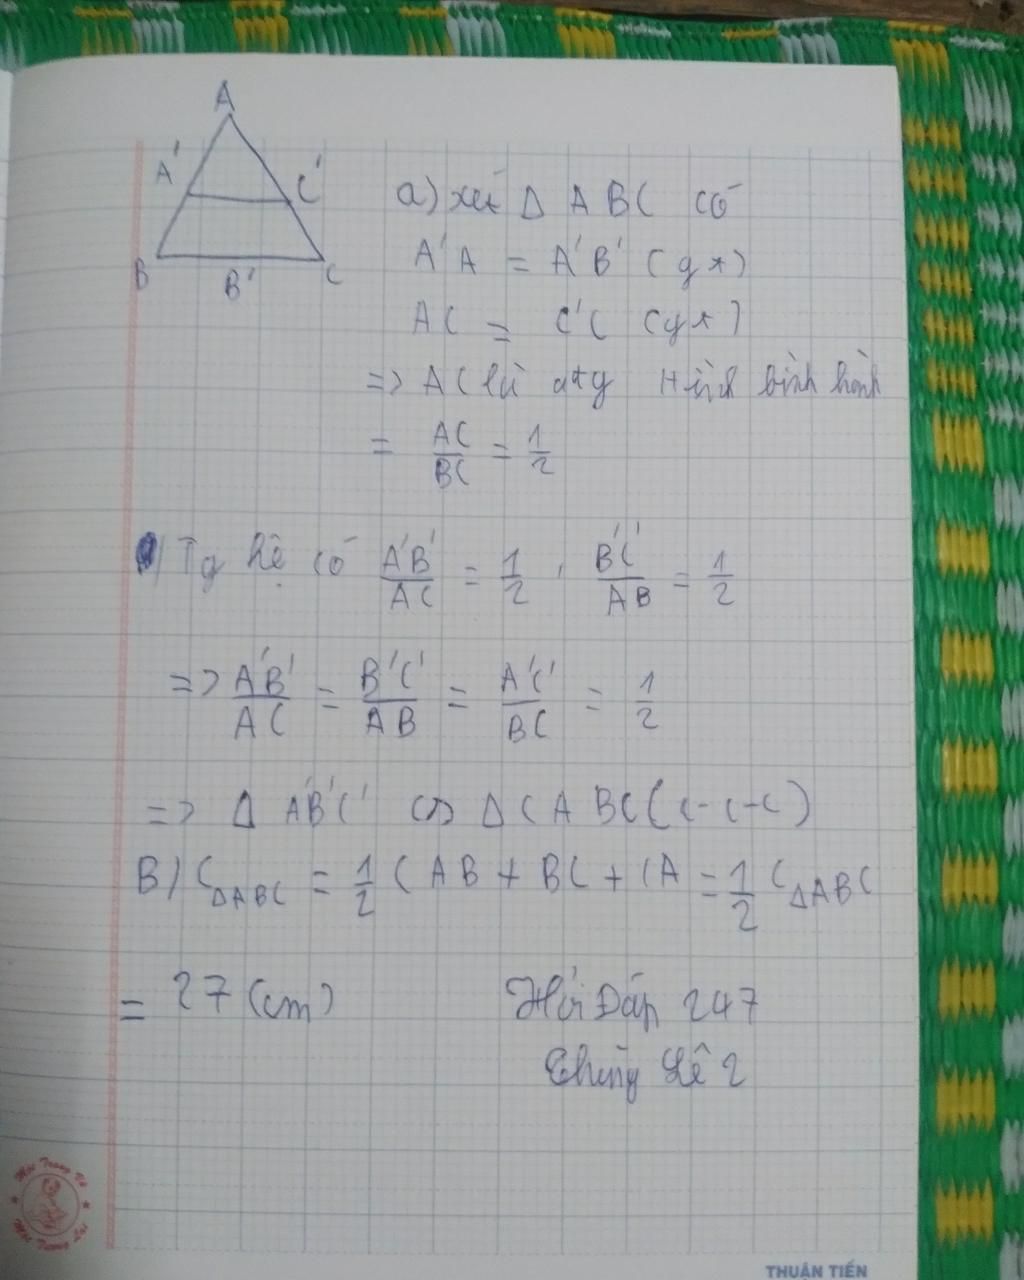 A
A'
C'
B
B'
C
a) xét Δ ABC có
A'A = A'B' (gt)
AC = C'C (gt)
=> AC là đtg bình hành
= AC/BC = 1/2
Tg hệ có A'B'/AC = 1/2, B'C'/AB = 1/2
=> A'B'/AC = B'C'/AB = A'C'/BC = 1/2
=> Δ A'B'C' ∽ Δ CABC (c-c-c)
B) C ΔABC = 1/2 ( AB + BC + CA = 1/2 C ΔABC
= 27 (cm)
Hỏi Đáp 247
2
THUẬN TIẾN